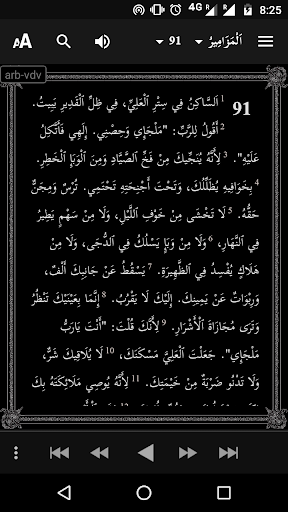 4G R 8:25
AA اَلْمَزَامِيرُ 91
arb-vdv
91 1 اَلسَّاكِنُ فِي سِتْرِ ٱلْعَلِيِّ، فِي ظِلِّ ٱلْقَدِيرِ يَبِيتُ.
2 أَقُولُ لِلرَّبِّ: "مَلْجَإِي وَحِصْنِي. إِلَهِي فَأَتَّكِلُ
عَلَيْهِ". 3 لِأَنَّهُ يُنَجِّيكَ مِنْ فَخِّ ٱلصَّيَّادِ وَمِنَ ٱلْوَبَإِ ٱلْخَطِرِ.
4 بِخَوَافِيهِ يُظَلِّلُكَ، وَتَحْتَ أَجْنِحَتِهِ تَحْتَمِي. تُرْسٌ وَمِجَنٌّ
حَقُّهُ. 5 لَا تَخْشَى مِنْ خَوْفِ ٱللَّيْلِ، وَلَا مِنْ سَهْمٍ يَطِيرُ
فِي ٱلنَّهَارِ، 6 وَلَا مِنْ وَبَإٍ يَسْلُكُ فِي ٱلدُّجَى، وَلَا مِنْ
هَلَاكٍ يُفْسِدُ فِي ٱلظَّهِيرَةِ. 7 يَسْقُطُ عَنْ جَانِبِكَ أَلْفٌ،
وَرِبْوَاتٌ عَنْ يَمِينِكَ. إِلَيْكَ لَا يَقْرُبُ. 8 إِنَّمَا بِعَيْنَيْكَ تَنْظُرُ
وَتَرَى مُجَازَاةَ ٱلْأَشْرَارِ. 9 لِأَنَّكَ قُلْتَ: "أَنْتَ يَارَبُّ
مَلْجَإِي". جَعَلْتَ ٱلْعَلِيَّ مَسْكَنَكَ، 10 لَا يُلَاقِيكَ شَرٌّ،
وَلَا تَدْنُو ضَرْبَةٌ مِنْ خَيْمَتِكَ. 11 لِأَنَّهُ يُوصِي مَلَائِكَتَهُ بِكَ